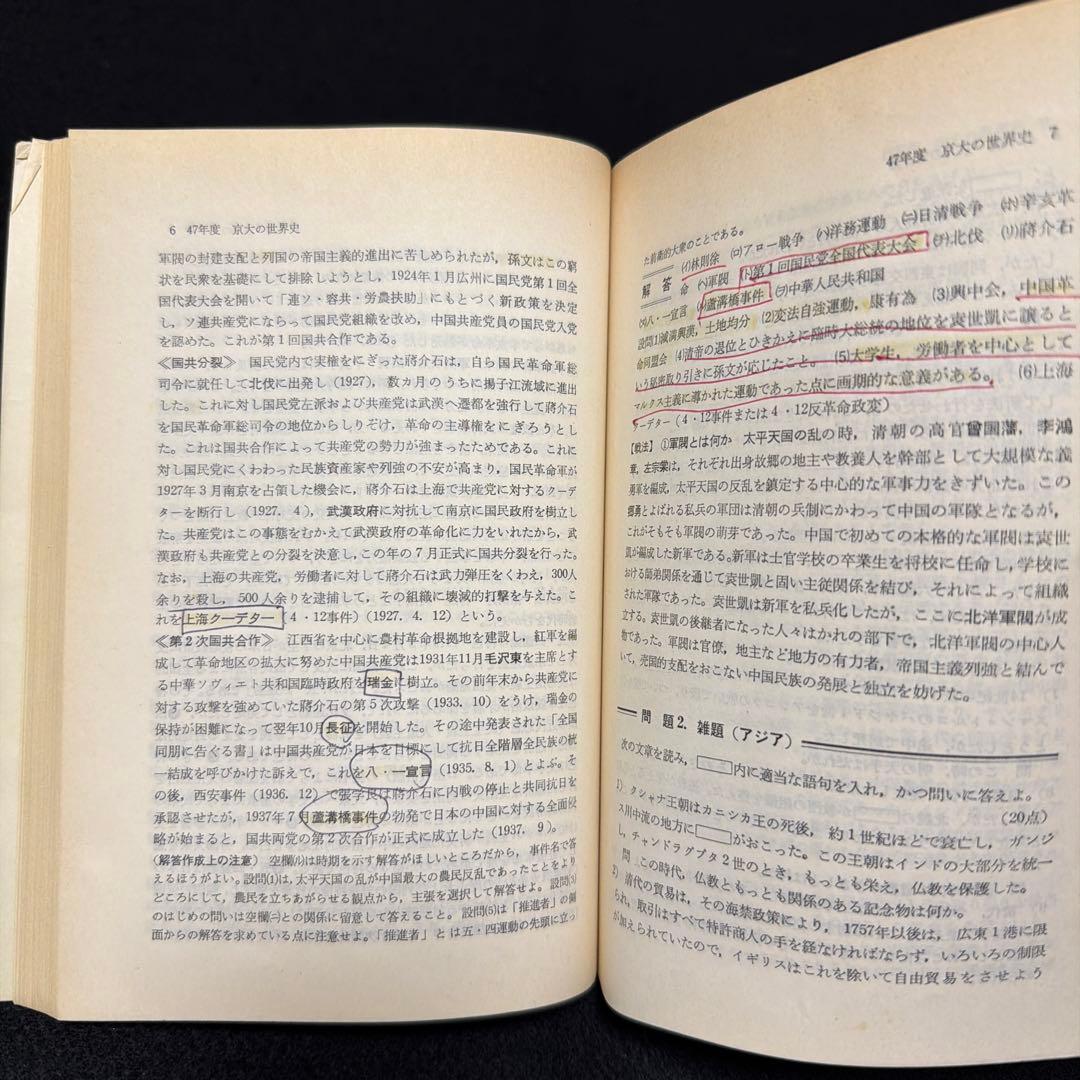 6 47年度 京大の世界史
軍閥の封建支配と列国の帝国主義的進出に苦しめられたが，孫文はこの窮
状を民衆を基礎にして排除しようとし，1924年1月広州に国民党第1回全
国代表大会を開いて「連ソ・容共・労農扶助」にもとづく新政策を決定
し，ソ連共産党にならって国民党組織を改め，中国共産党員の国民党入党
を認めた。これが第1回国共合作である。
《国共分裂》 国民党内で実権をにぎった蔣介石は，自ら国民革命軍総
司令に就任して北伐に出発し（1927），数カ月のうちに揚子江流域に進出
した。これに対し国民党左派および共産党は武漢へ遷都を強行して蔣介石
を国民革命軍総司令の地位からしりぞけ，革命の主導権をにぎろうとし
た。これは国共合作によって共産党の勢力が強まったためである。これに
対し国民党にくわわった民族資産家や列強の不安が高まり，国民革命軍が
1927年3月南京を占領した機会に，蔣介石は上海で共産党に対するクーデ
ターを断行し（1927. 4），武漢政府に対抗して南京に国民政府を樹立し
た。共産党はこの事態をむかえて武漢政府の革命化に力をいれたから，武
漢政府も共産党との分裂を決意し，この年の7月正式に国共分裂を行った。
なお，上海の共産党，労働者に対して蔣介石は武力弾圧をくわえ，300人
余りを殺し，500人余りを逮捕して，その組織に壊滅的打撃を与えた。こ
れを上海クーデター（4・12事件）（1927. 4. 12）という。
《第2次国共合作》 江西省を中心に農村革命根拠地を建設し，紅軍を編
成して革命地区の拡大に努めた中国共産党は1931年11月毛沢東を主席とす
る中華ソヴィエト共和国臨時政府を瑞金に樹立。その前年末から共産党に
対する攻撃を強めていた蔣介石の第5次攻撃（1933. 10）をうけ，瑞金の
保持が困難になって翌年10月長征を開始した。その途中発表された「全国
同胞に告ぐる書」は中国共産党が日本を目標にして抗日全階層全民族の統
一結成を呼びかけた訴えで，これを八・一宣言（1935. 8. 1）とよぶ。そ
の後，西安事件（1936. 12）で張学良は蔣介石に内戦の停止と共同抗日を
承認させたが，1937年7月蘆溝橋事件の勃発で日本の中国に対する全面侵
略が始まると，国共両党の第2次合作が正式に成立した（1937. 9）。
（解答作成上の注意） 空欄(ハ)は時期を示す解答がほしいところだから，事件名で答
えるほうがよい。設問(1)は，太平天国の乱が中国最大の農民反乱であったことをより
どころにして，農民を立ちあがらせる観点から，主張を選択して解答せよ。設問(3)
のはじめの問いは空欄(ニ)との関係に留意して答えること。設問(5)は「推進者」の側
面からの解答を求めている点に注意せよ。「推進者」とは五・四運動の先頭に立っ
47年度 京大の世界史 7
た前衛的大衆のことである。
解 答 (イ)林則徐 (ロ)アロー戦争 (ハ)洋務運動 (ニ)日清戦争 (ホ)辛亥革
命 (ヘ)軍閥 (ト)第1回国民党全国代表大会 (チ)北伐 (リ)蔣介石
(ヌ)八・一宣言 (ル)蘆溝橋事件 (ヲ)中華人民共和国
設問(1)滅満興漢，土地均分 (2)変法自強運動，康有為 (3)興中会，中国革
命同盟会 (4)清帝の退位とひきかえに臨時大総統の地位を袁世凱に譲ると
いう秘密取り引きに孫文が応じたこと。 (5)大学生，労働者を中心として
マルクス主義に導かれた運動であった点に画期的な意義がある。 (6)上海
クーデター（4・12事件または4・12反革命政変）
【戦法】 ①軍閥とは何か 太平天国の乱の時，清朝の高官曾国藩，李鴻
章，左宗棠は，それぞれ出身故郷の地主や教養人を幹部として大規模な義
勇軍を編成，太平天国の反乱を鎮定する中心的な軍事力をきずいた。この
郷勇とよばれる私兵の軍団は清朝の兵制にかわって中国の軍隊となるが，
これがそもそも軍閥の萌芽であった。中国で初めての本格的な軍閥は袁世
凱が編成した新軍である。新軍は士官学校の卒業生を将校に任命し，学校に
おける師弟関係を通じて袁世凱と固い主従関係を結び，それによって組織
された軍隊であった。袁世凱は新軍を私兵化したが，ここに北洋軍閥が成
立する。袁世凱の後継者になった人々はかれの部下で，北洋軍閥の中心人
物であった。軍閥は官僚，地主など地方の有力者，帝国主義列強と結んで
いて，売国的支配をおこない中国民族の発展と独立を妨げた。
問 題 2. 雑題（アジア）
次の文章を読み，□内に適当な語句を入れ，かつ問いに答えよ。
（20点）
1) クシャナ王朝はカニシカ王の死後，約1世紀ほどで衰亡し，ガンジ
ス川中流の地方に□がおこった。この王朝はインドの大部分を統一
し，チャンドラグプタ2世のとき，もっとも栄え，仏教を保護した。
問 この時代，仏教ともっとも関係のある記念物は何か。
2) 清代の貿易は，その海禁政策により，1757年以後は，広東1港に限
られ，取引はすべて特許商人の手を経なければならず，いろいろの制限
が加えられていたので，イギリスはこれを除いて自由貿易をさせよう